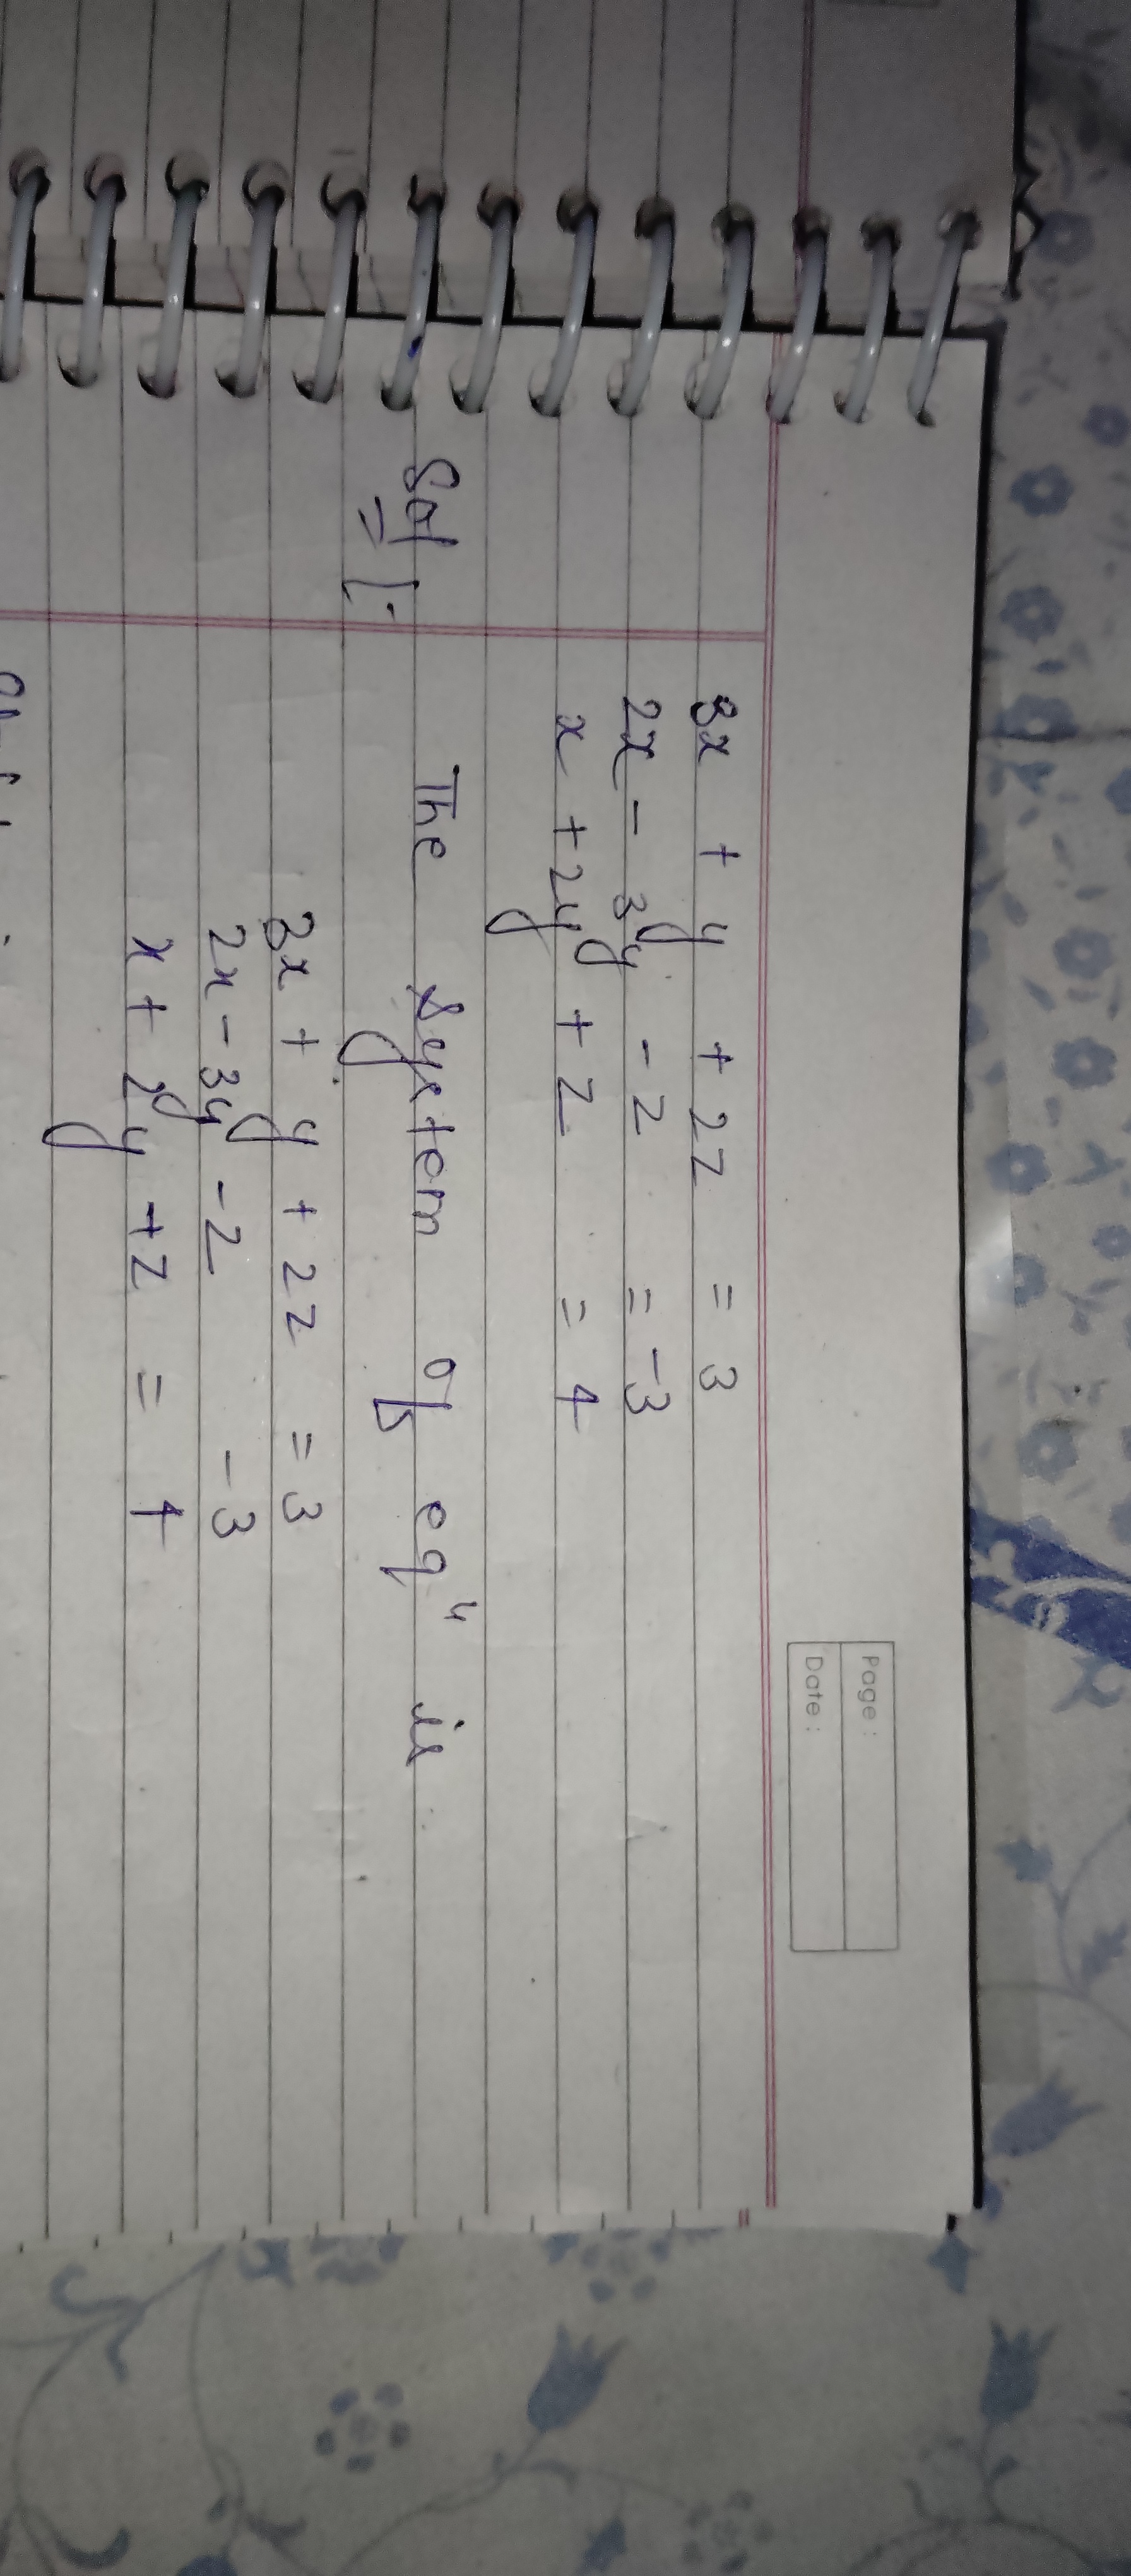 Page :
Date :
3x + y + 2z = 3
2x - 3y - z = -3
x + 2y + z = 4
Sol :- The system of eqn is
3x + y + 2z = 3
2x - 3y - z - 3
x + 2y + z = 4